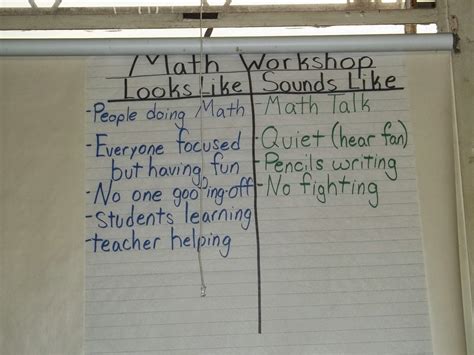 Math Workshop
Looks Like
-People doing Math
-Everyone focused
but having fun
-No one goofing-off
-Students learning
-teacher helping
Sounds Like
-Math Talk
-Quiet (hear fan)
-Pencils writing
-No fighting